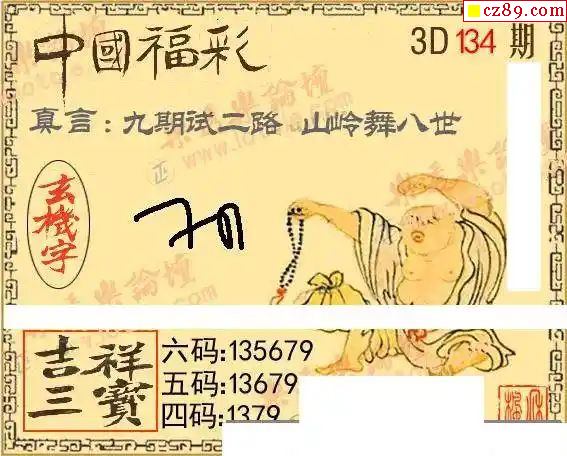 cz89.com
中國福彩
3D 134 期
真言：九期试二路 山岭舞八世
玄機字
吉祥三寶
六码:135679
五码:13679
四码:1379